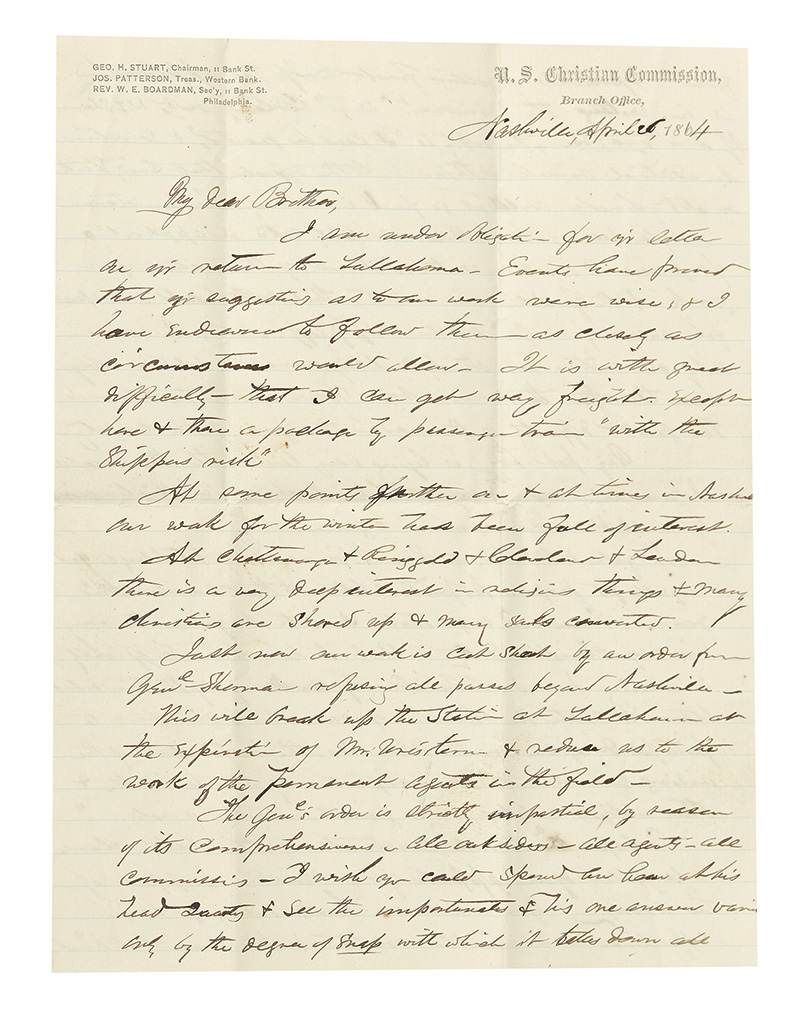 GEO. H. STUART, Chairman, 11 Bank St.
JOS. PATTERSON, Treas., Western Bank.
REV. W. E. BOARDMAN, Sec'y, 11 Bank St.
Philadelphia.
U. S. Christian Commission,
Branch Office,
Nashville, April 26, 1864
My dear Brother,
I am under obligation for yr letter
on yr return to Tullahoma - Events have proved
that yr suggestions as to our work were wise, & I
have endeavored to follow them as closely as
circumstances would allow - It is with great
difficulty - that I can get way freight. Except
here & there a package by passenger train "with the
Shippers risk"
At some points further on & at times in Nashv
our work for the winter has been full of interest.
At Chattanooga & Ringgold & Cleveland & Loudon
there is a very deep interest in religious things & many
Christians are stirred up & many souls converted.
Just now our work is cut short by an order from
Genl Sherman refusing all passes beyond Nashville -
This will break up the Station at Tullahoma at
the expiration of Mr. & reduce us to the
work of the permanent agents in the field -
The Genl's order is strictly impartial, by reason
of its comprehensiveness - all outsiders - all agents - all
commissions - I wish you could spend an hour at his
head quarters & see the importunates & his one answer varie
only by the degree of snap with which it takes down all